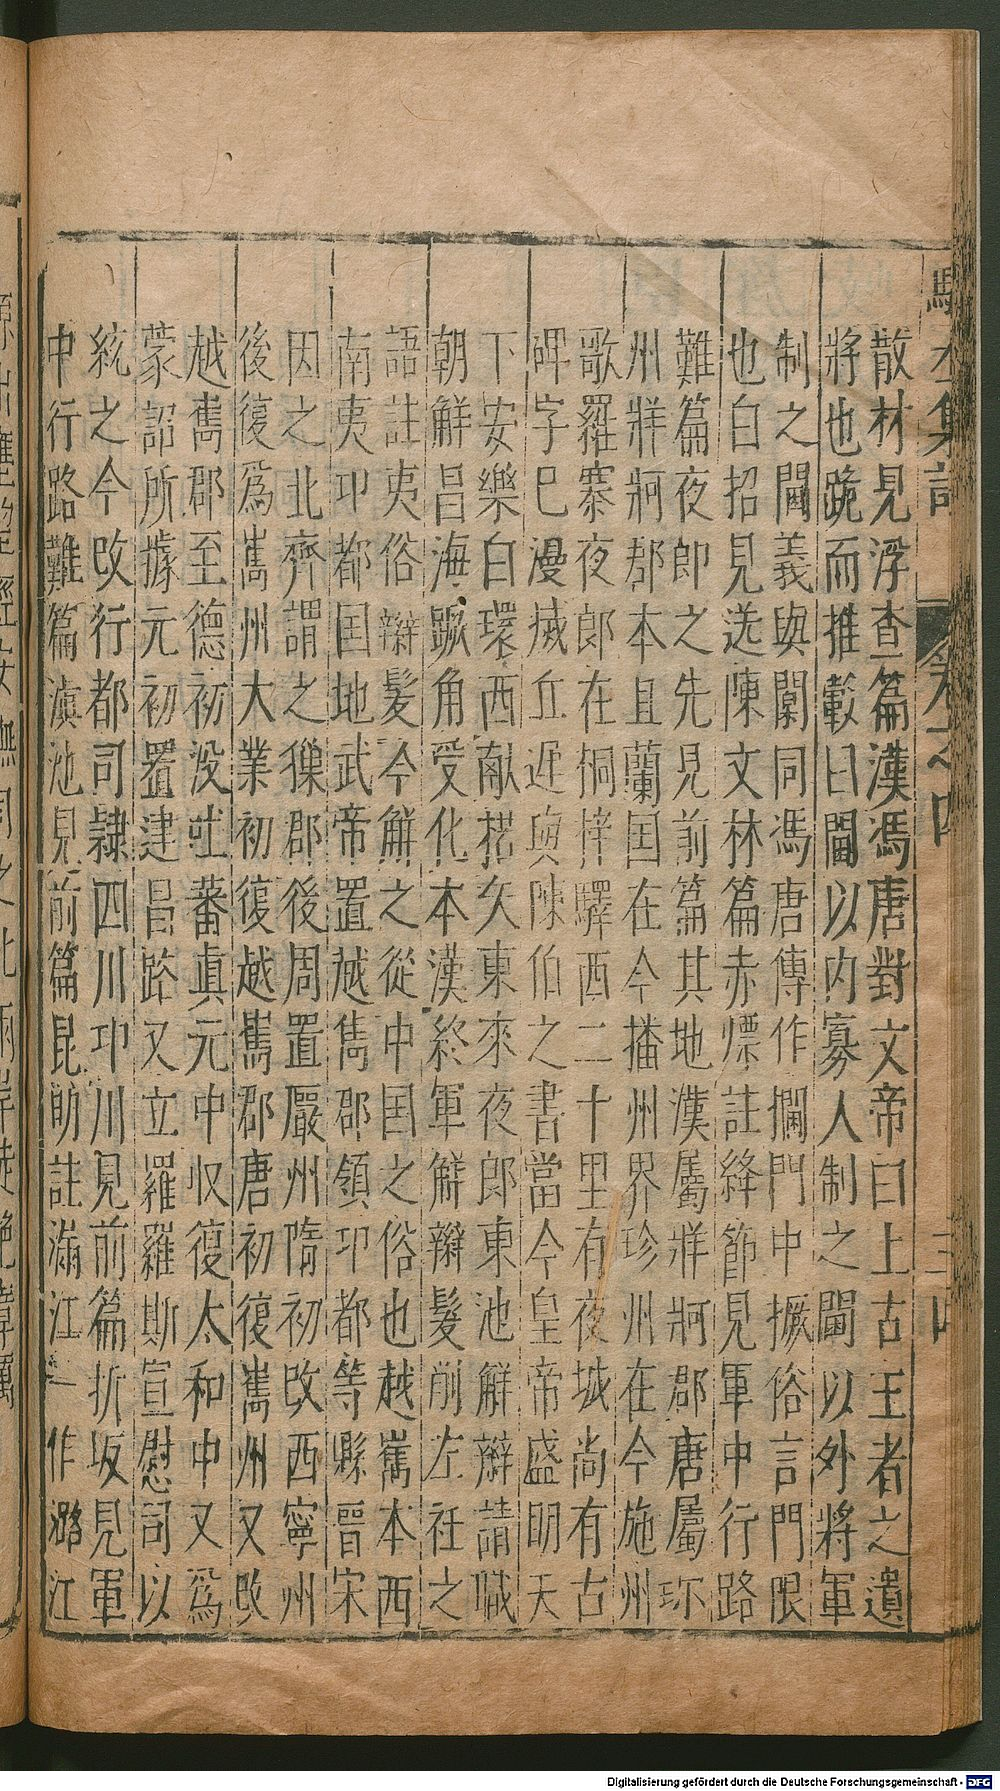 散材見浮查篇漢馮唐對文帝曰上古王者之遺
將也跪而推轂曰閫以內寡人制之閫以外將軍
制之閫義與闑同馮唐傳作闌門中橛俗言門限
也白招見送陳文林篇赤熛註絳節見軍中行路
難篇夜郎之先見前篇其地漢屬牂牁郡唐屬珎
州牂牁郡本且蘭国在今播州界珍州在今施州
歌羅寨夜郎在桐梓驛西二十里有夜城尚有古
碑字巳漫滅丘遲與陳伯之書當今皇帝盛明天
下安樂白環西献楛矢東來夜郎東池觧辮請職
朝觧昌海蹶角受化本漢終軍觧辮髮削左衽之
語註夷俗辮髮今觧之從中国之俗也越雟本西
南夷卭都国地武帝置越雋郡領卭都等縣晉宋
因之北齊謂之獠郡後周置嚴州隋初改西寧州
後復爲雟州大業初復越雟郡唐初復雟州又改
越雟郡至德初没吐蕃眞元中収復太和中又爲
蒙詔所據元初置建昌路又立羅羅斯宣慰司以
統之今改行都司隷四川卭川見前篇折坂見軍
中行路難篇滇池見前篇昆明註滿江一作潞江
卷之四
Digitalisierung gefördert durch die Deutsche Forschungsgemeinschaft - DFG